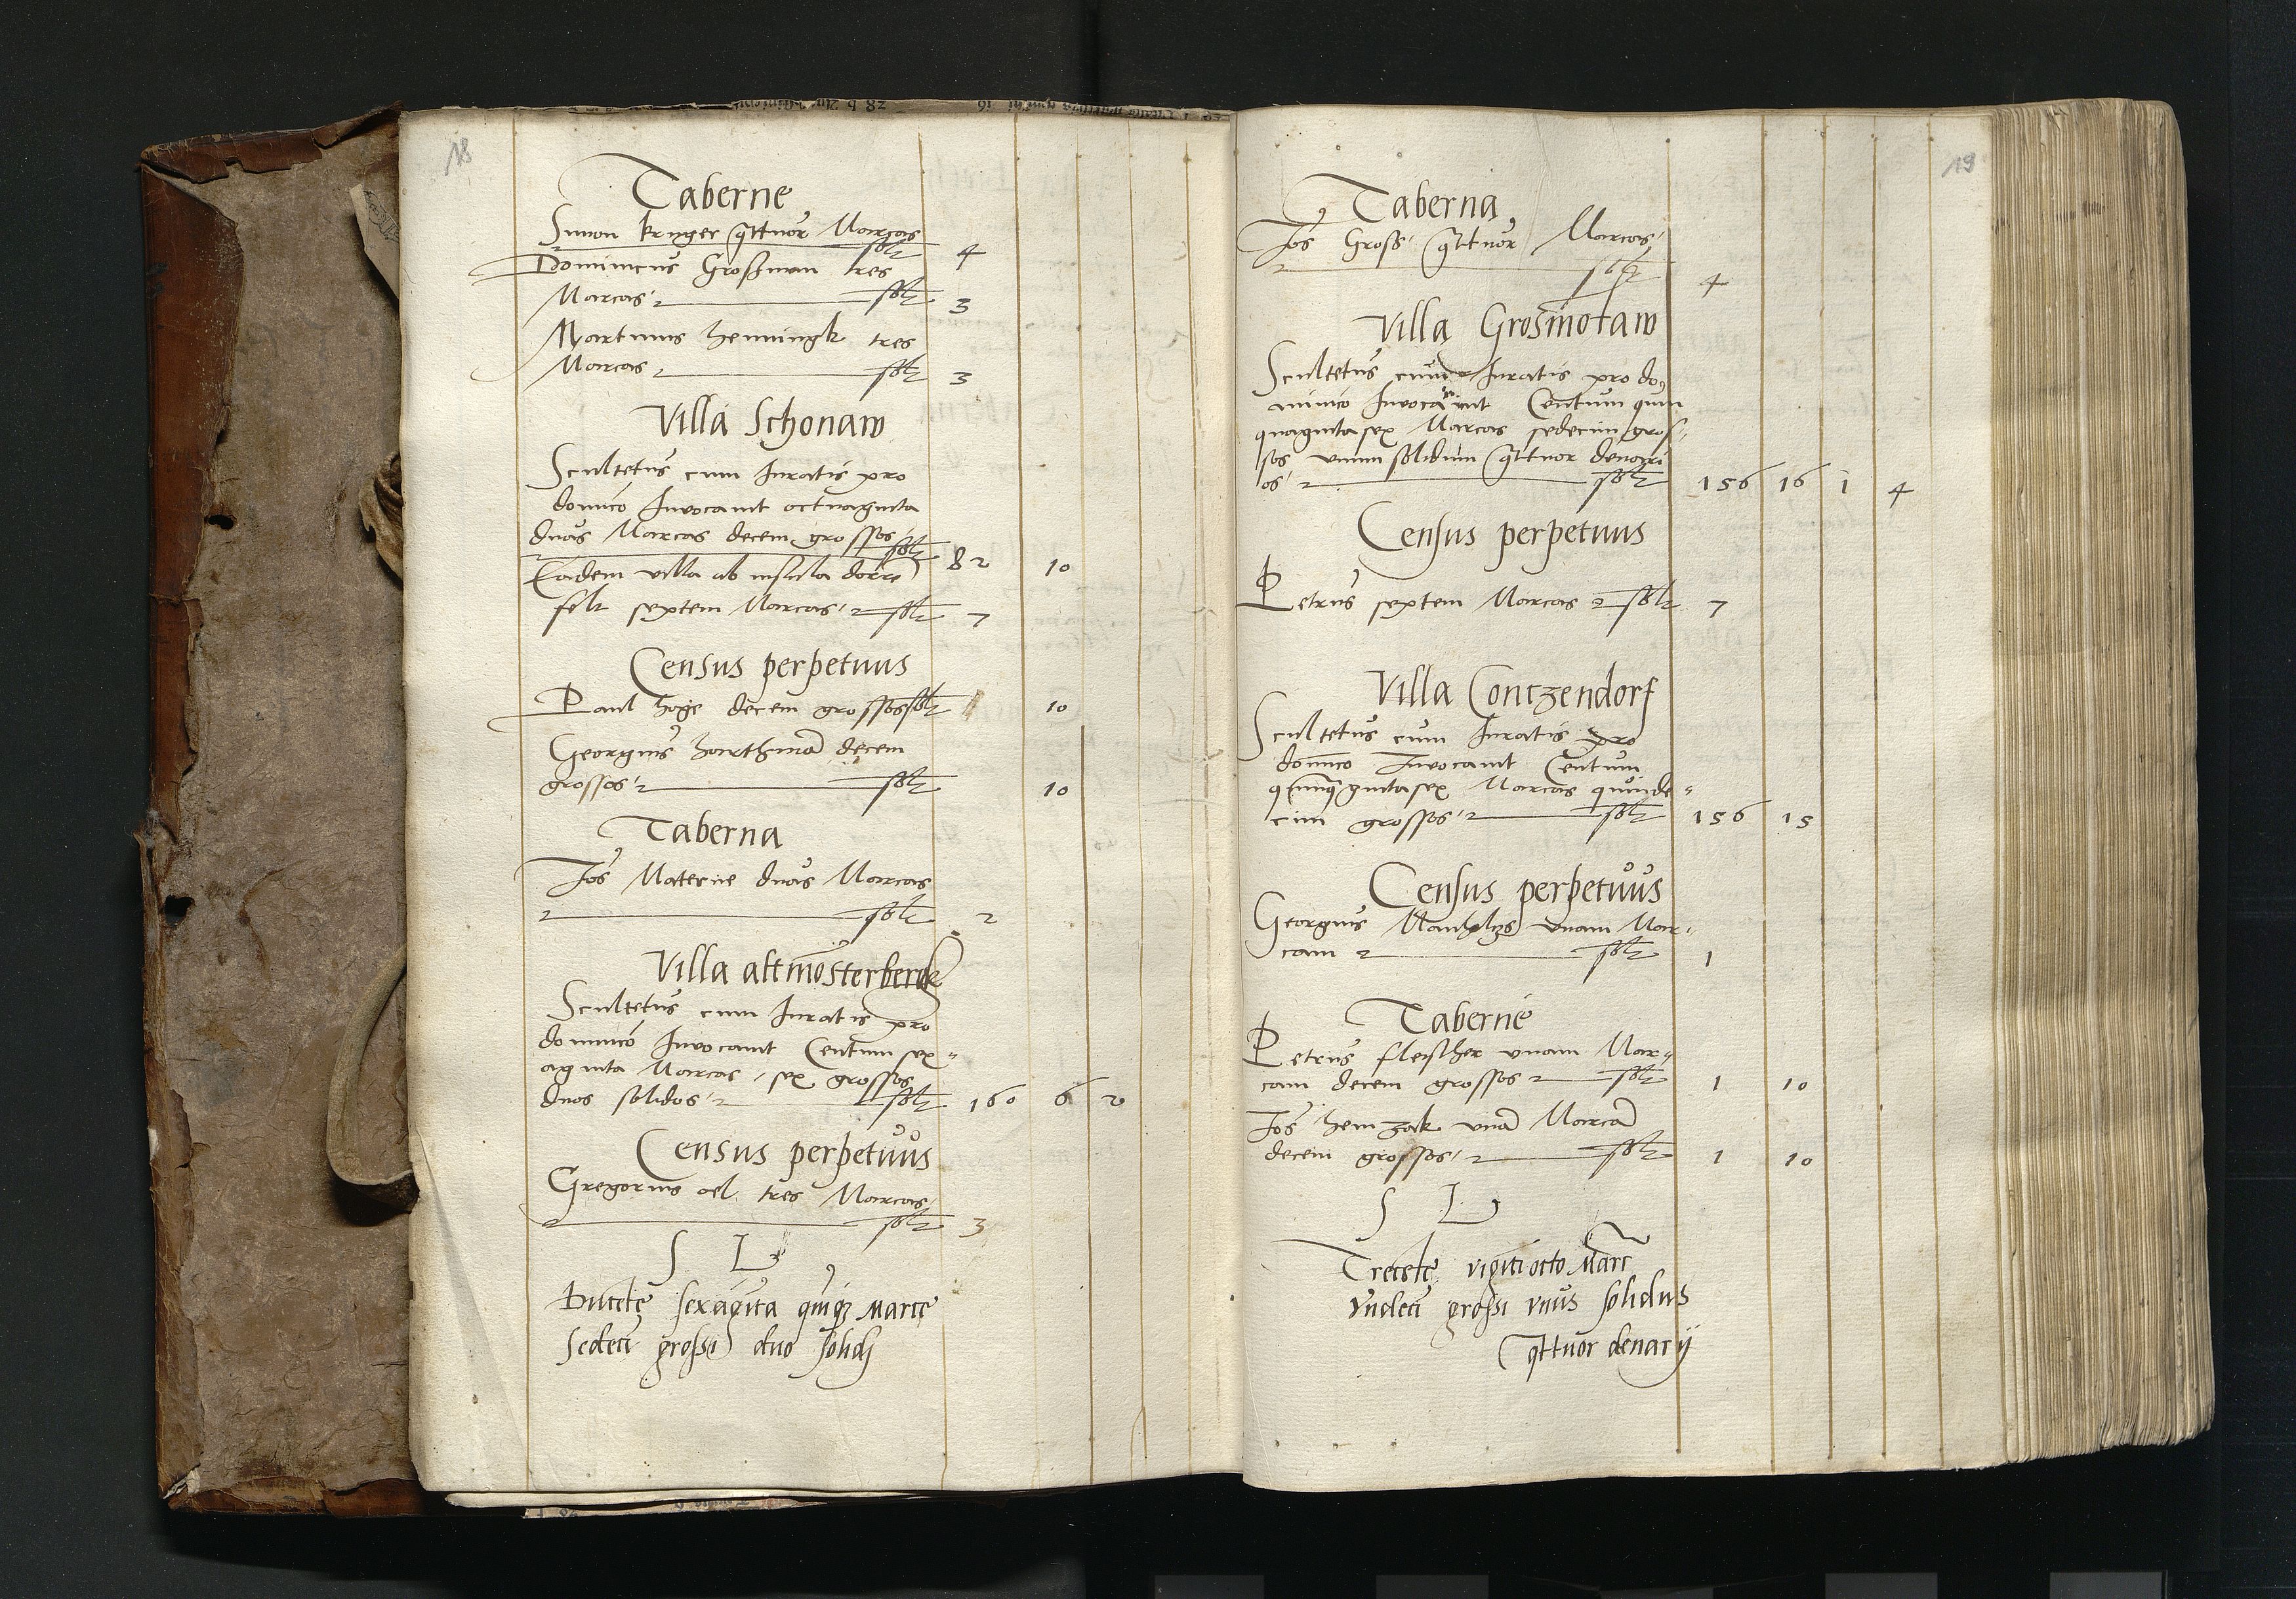 18
Taberne
Simon kruger q̄ttuor Marcas
solt 4
Dominicus Grosman tres
Marcas solt 3
Martinus henningk tres
Marcas solt 3
Villa Schonaw
Scultetus cum Iuratis pro
domico Invocavit octuaginta
duas Marcas decem grossos
solt 82 10
Eadem villa ab insula dorre
felt septem Marcas solt 7
Census perpetuus
Paul hoge decem grossos solt 10
Georgius harthmā decem
grossos solt 10
Taberna
Jos Materne duas Marcas
solt 2
Villa altmōsterbergk
Scultetus cum Iuratis pro
domico Invocavit Centum sex-
aginta Marcas sex grossos
duos solidos solt 160 6 2
Census perpetuus
Gregorius oel tres Marcas
solt 3
S L
Ducētę sexagīta quīqz marcę
Sedecī grossi duo solidj
19
Taberna
Jos Gross q̄ttuor Marcas
solt 4
Villa Grosmotaw
Scultetus cum Iuratis pro do-
minico Invocarunt Centum quin
quagintasex Marcas sedecim gros-
sos unum solidum q̄ttuor denari
os solt 156 16 1 4
Census perpetuus
Petrus septem Marcas solt 7
Villa Contzendorf
Scultetus cum Iuratis pro
domico Invocavit Centum
quinquagintasex Marcas quinde-
cim grossos solt 156 15
Census perpetuus
Georgius unam Mar-
cam solt 1
Taberne
Petrus fleischer unam Mar-
cam decem grossos solt 1 10
Jos henzak unā Marcā
decem grossos solt 1 10
S L
Trecētę vigīti octo Marc
Vndecī grossi vnus solidus
q̄ttuor denarij